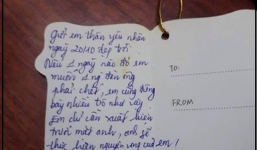 Gửi em thân yêu nhân
ngày 20/10 đẹp trời
Nếu 1 ngày nào đó em
muốn 1 ng đến
phải chết, em cũng đừng
bày nhiều trò như vậy
Em chỉ cần xuất hiện
trước mặt anh, anh sẽ
thực hiện nguyện ước của em!
TO:
FROM